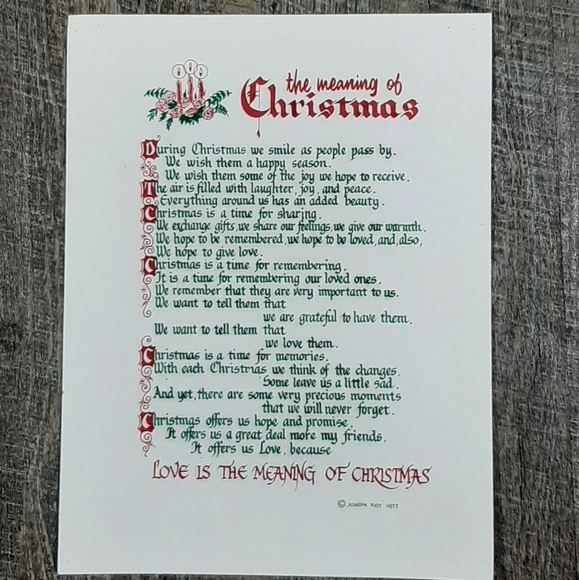 the meaning of
Christmas
During Christmas we smile as people pass by.
We wish them a happy season.
We wish them some of the joy we hope to receive.
The air is filled with laughter, joy, and peace.
Everything around us has an added beauty.
Christmas is a time for sharing.
We exchange gifts, we share our feelings, we give our warmth.
We hope to be remembered, we hope to be loved, and, also,
We hope to give love.
Christmas is a time for remembering.
It is a time for remembering our loved ones.
We remember that they are very important to us.
We want to tell them that
we are grateful to have them.
We want to tell them that
we love them.
Christmas is a time for memories.
With each Christmas we think of the changes.
Some leave us a little sad.
And yet, there are some very precious moments
that we will never forget.
Christmas offers us hope and promise.
It offers us a great deal more my friends,
It offers us Love, because
LOVE IS THE MEANING OF CHRISTMAS
© JOSEPH ROY 1977